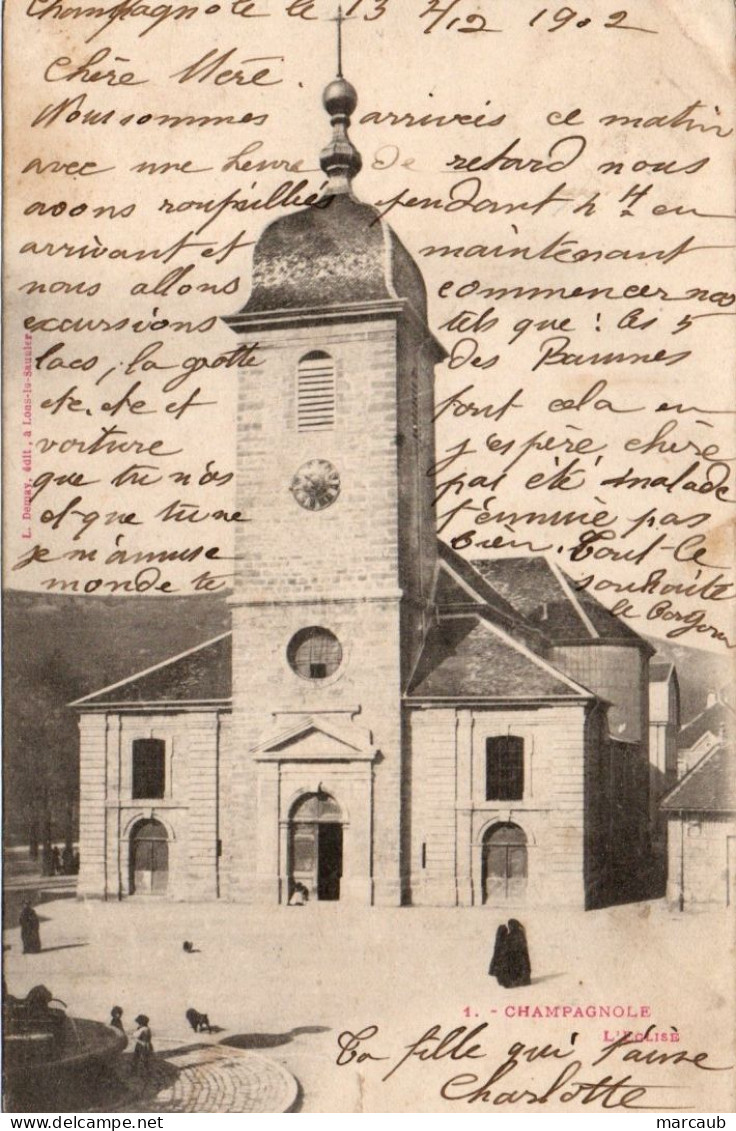 Champagnole le 13 4/12 1902
Chère Mère.
Nous sommes arrivées ce matin
avec une heure de retard nous
avons roupillées pendant 2 h 4 en
arrivant et maintenant
nous allons commencer nos
excursions tels que : les 5
lacs, la grotte des Baumes
etc. etc et font cela en
voiture j'espère chère
que tu n'as pas été malade
et que tu ne t'ennuie pas
je m'amuse bien. Tout le
monde te souhaite
le bonjour
L. Demay, édit., à Lons-le-Saunier
1. - CHAMPAGNOLE
L'EGLISE
Ta fille qui t'aime
Charlotte
marcaub
delcampe.net